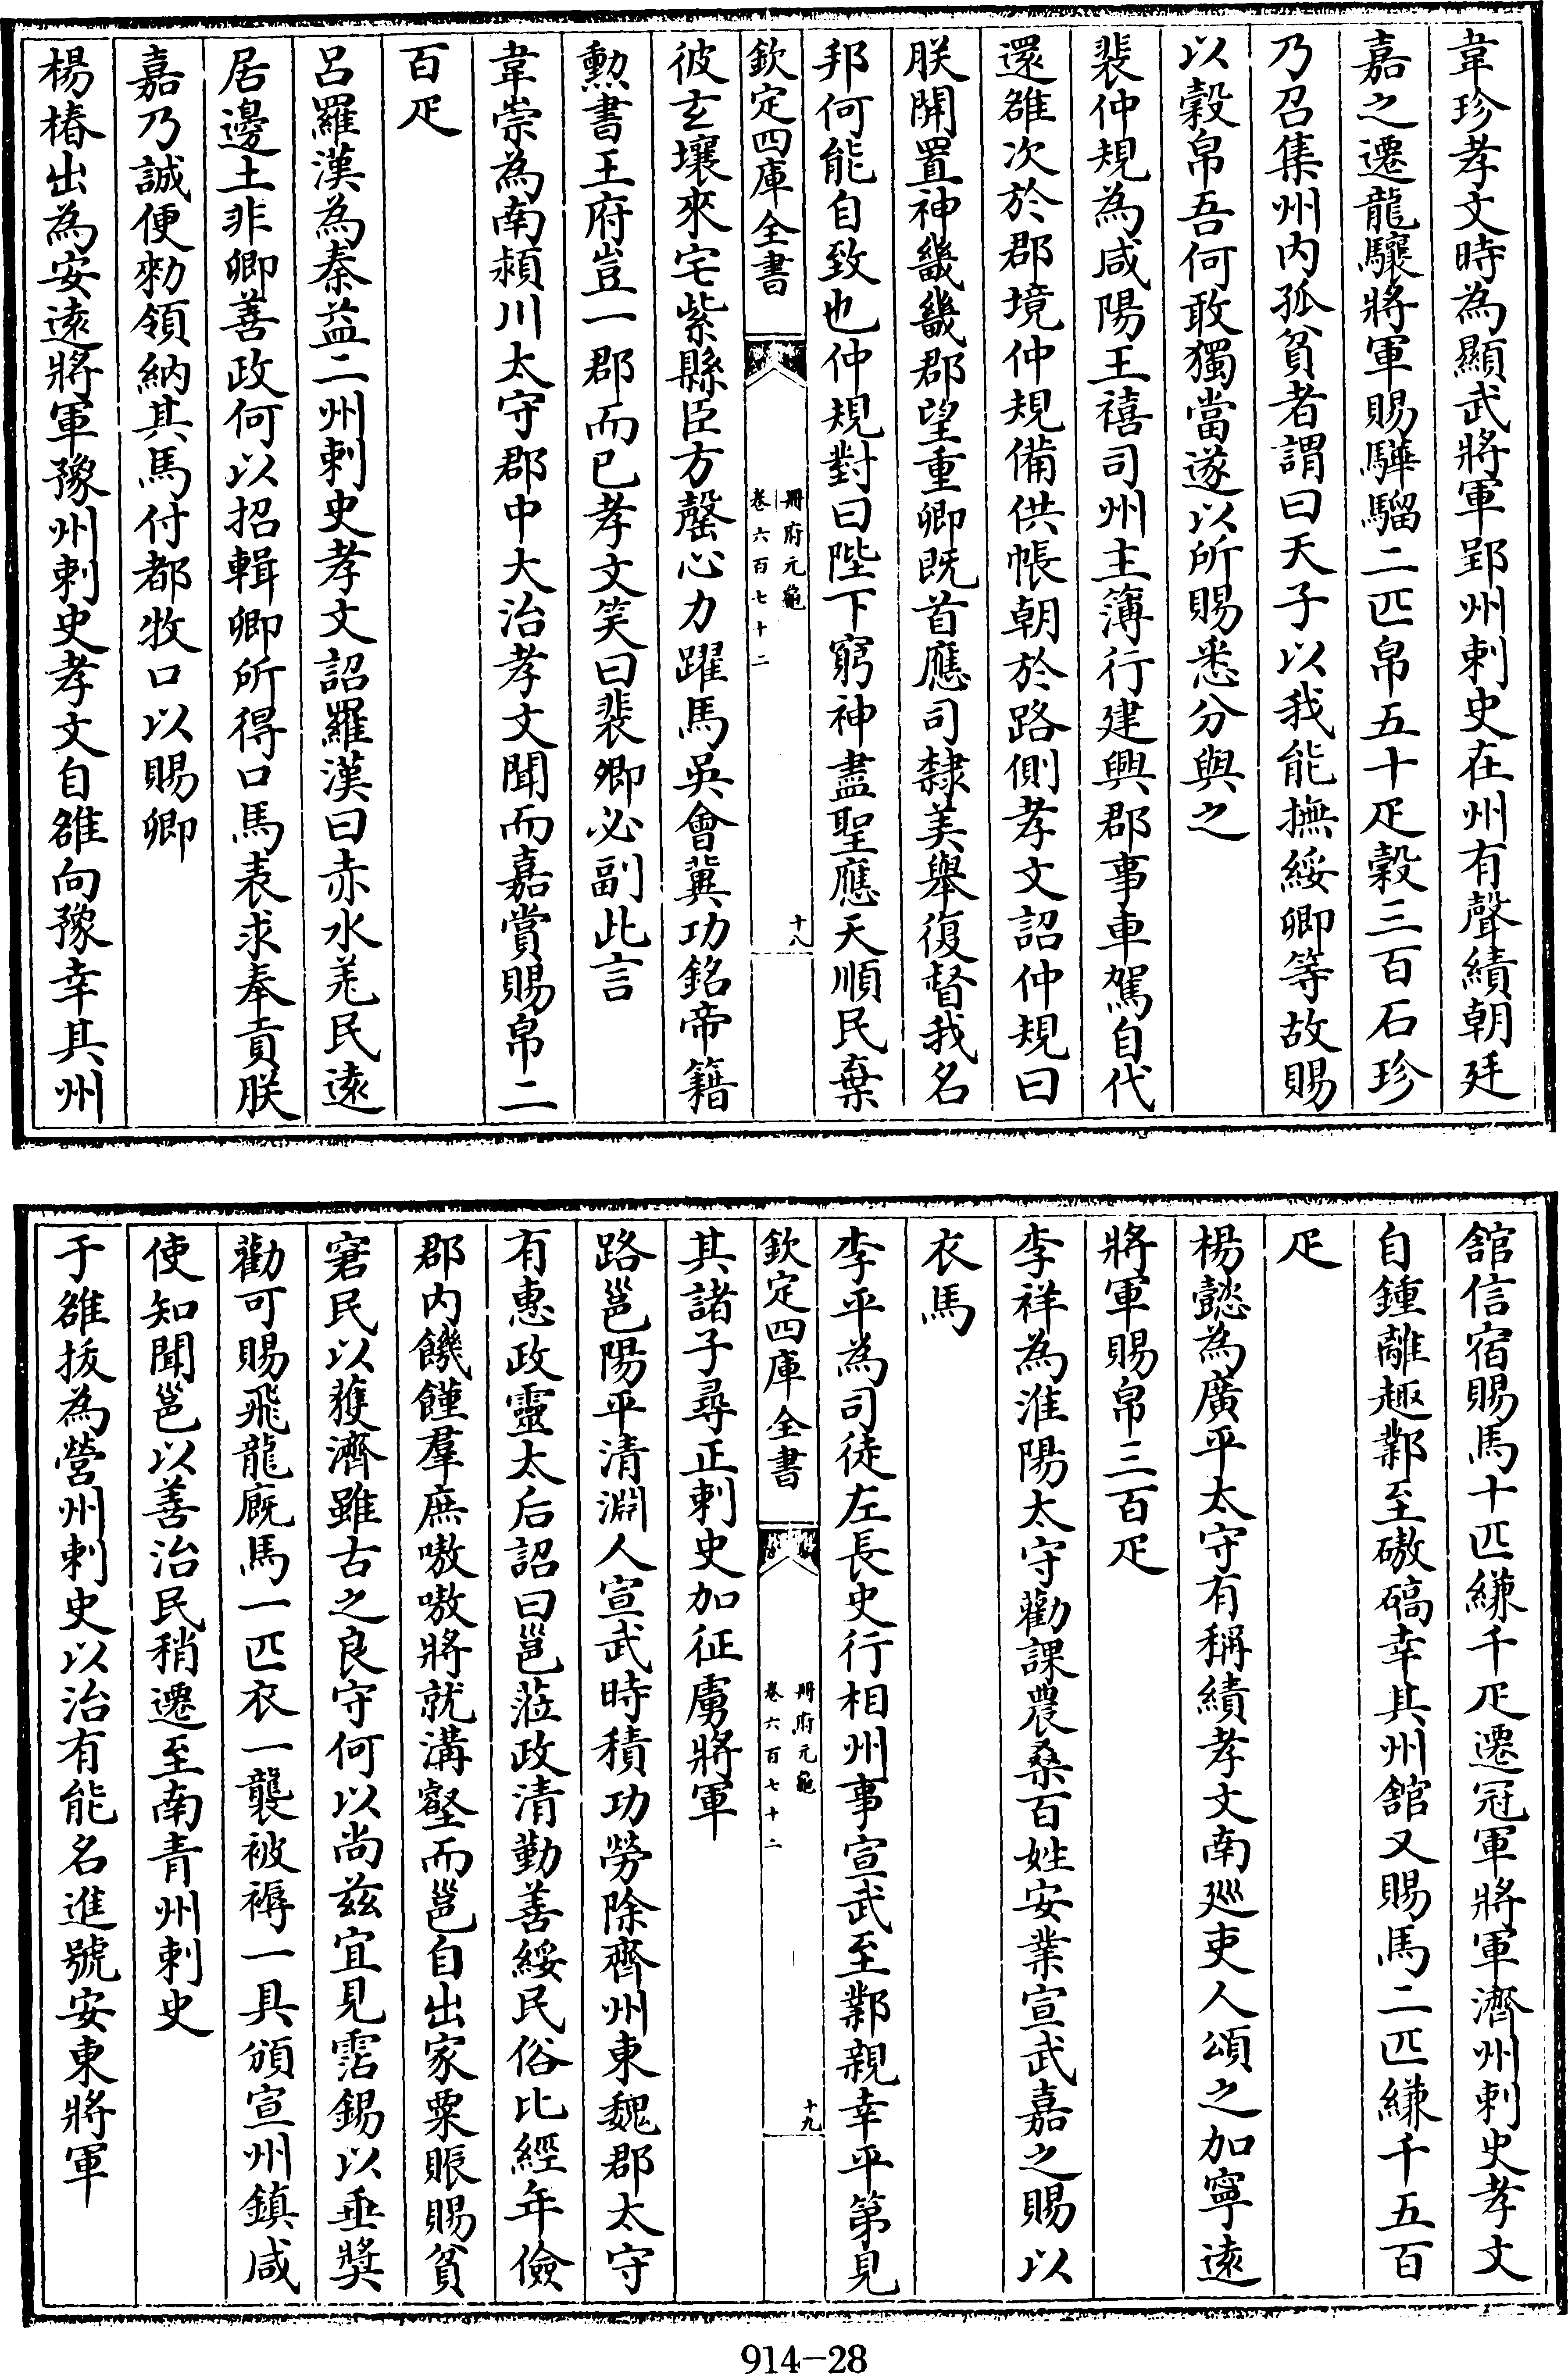 韋珍孝文時為顯武將軍郢州刺史在州有聲績朝廷
嘉之遷龍驤將軍賜驊騮二匹帛五十疋穀三百石珍
乃召集州内孤貧者謂曰天子以我能撫綏卿等故賜
以穀帛吾何敢獨當遂以所賜悉分與之
裴仲規為咸陽王禧司州主簿行建興郡事車駕自代
還雒次於郡境仲規備供帳朝於路側孝文詔仲規曰
朕開置神畿畿郡望重卿既首應司隸美舉復督我名
邦何能自致也仲規對曰陛下窮神盡聖應天順民棄
欽定四庫全書
冊府元龜
卷六百七十二
十八
彼玄壤來宅紫縣臣方罄心力躍馬吳會冀功銘帝籍
勲書王府豈一郡而已孝文笑曰裴卿必副此言
韋崇為南潁川太守郡中大治孝文聞而嘉賞賜帛二
百疋
吕羅漢為秦益二州刺史孝文詔羅漢曰赤水羌民遠
居邊土非卿善政何以招輯卿所得口馬表求奉貢朕
嘉乃誠便勑領納其馬付都牧口以賜卿
楊椿出為安遠將軍豫州刺史孝文自雒向豫幸其州
館信宿賜馬十匹縑千疋遷冠軍將軍濟州刺史孝文
自鍾離趣鄴至磝碻幸其州館又賜馬二匹縑千五百
疋
楊懿為廣平太守有稱績孝文南巡吏人頌之加寧遠
將軍賜帛三百疋
李祥為淮陽太守勸課農桑百姓安業宣武嘉之賜以
衣馬
李平為司徒左長史行相州事宣武至鄴親幸平第見
欽定四庫全書
冊府元龜
卷六百七十二
十九
其諸子尋正刺史加征虜將軍
路邕陽平清淵人宣武時積功勞除齊州東魏郡太守
有惠政靈太后詔曰邕蒞政清勤善綏民俗比經年儉
郡内饑饉羣庶嗷嗷將就溝壑而邕自出家粟賑賜貧
窘民以獲濟雖古之良守何以尚兹宜見霑錫以垂奬
勸可賜飛龍廐馬一匹衣一襲被褥一具頒宣州鎮咸
使知聞邕以善治民稍遷至南青州刺史
于雒拔為營州刺史以治有能名進號安東將軍
914-28